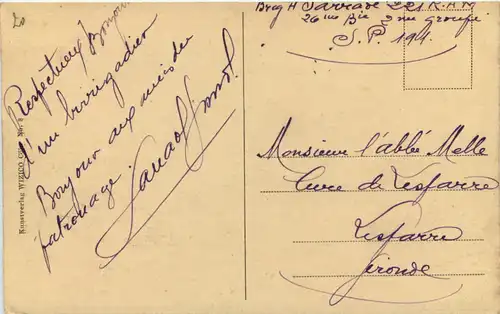 20
Respectueux Bonjour
d'un brigadier
Bonjour aux amis du
patronage.
Kunstverlag WIZICO
Brig H Sarrade R.A.
26ème Bie 2me groupe
S.P. 194.
Monsieur l'abbé Melle
Cure de Lesparre
Lesparre
Gironde